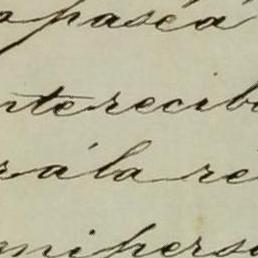 pasea
nterecib
rá la re
nipers